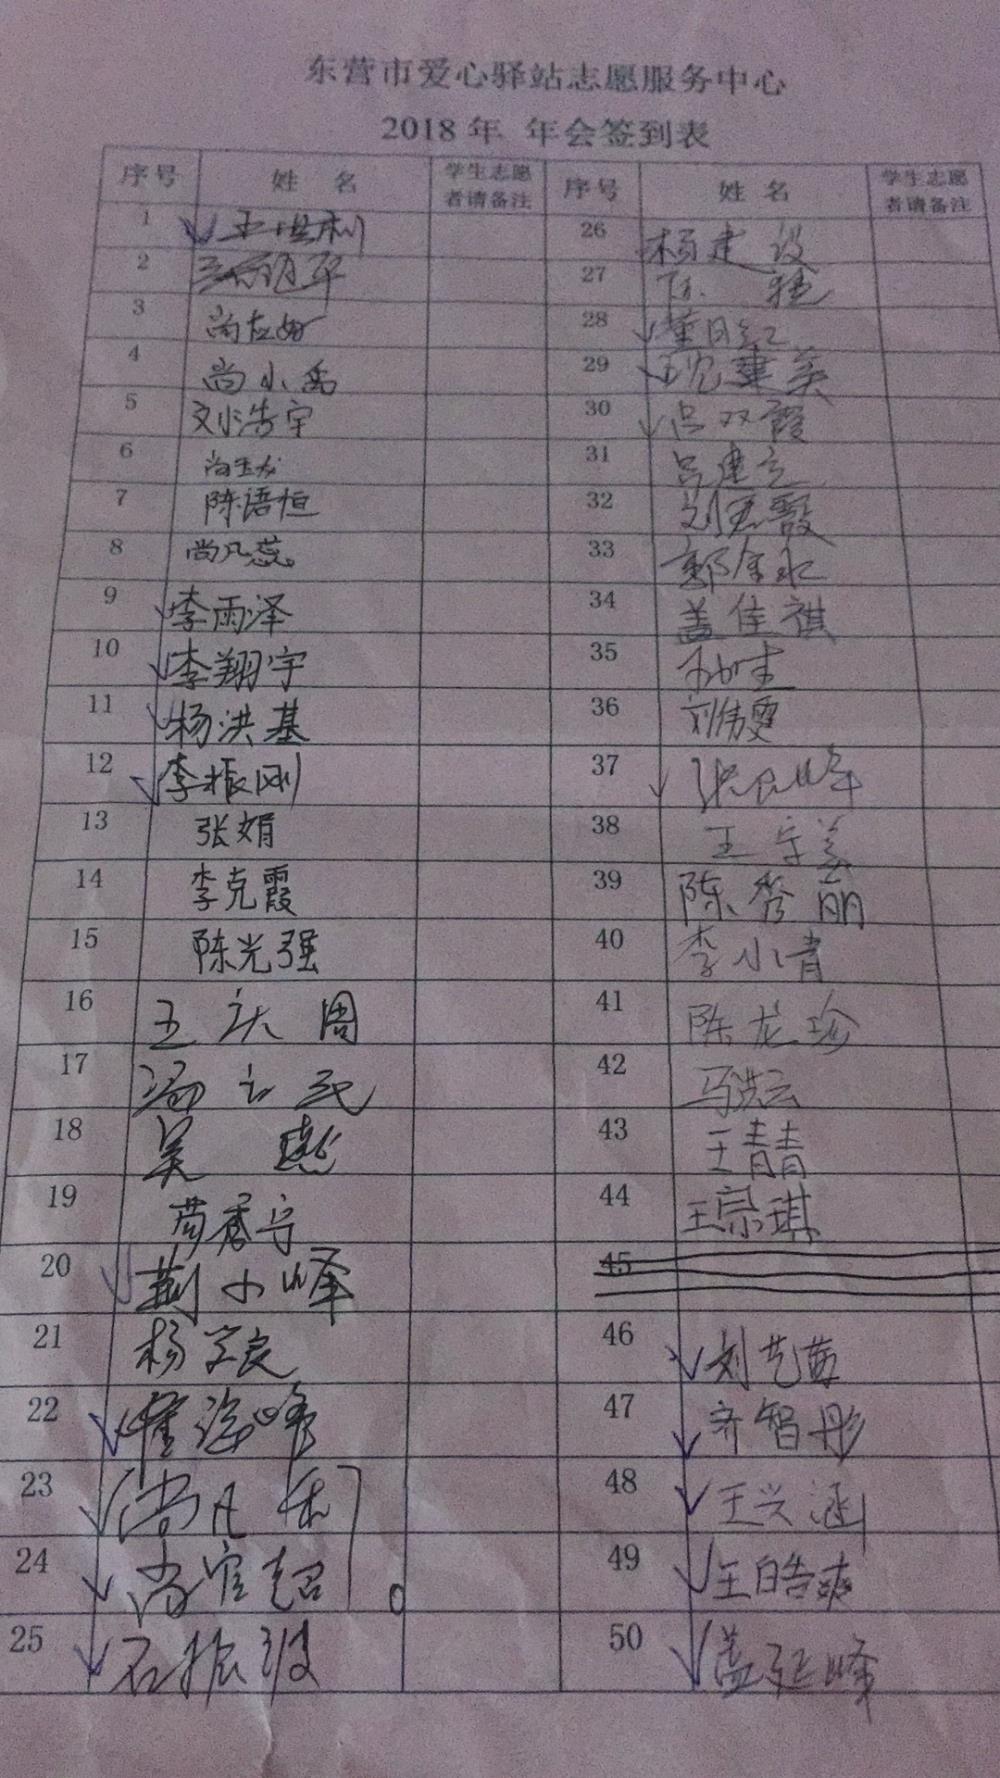 东营市爱心驿站志愿服务中心
2018 年 年会签到表
序号 姓 名 学生志愿者请备注 序号 姓 名 学生志愿者请备注
1 26 杨建设
2 27
3 28 董月红
4 尚小禹 29
5 刘浩宇 30 吕双霞
6 尚玉龙 31 吕建立
7 陈语恒 32
8 尚凡蕊 33 郭金永
9 李雨泽 34 盖佳祺
10 李翔宇 35
11 杨洪基 36 刘倩雯
12 李振刚 37
13 张娟 38 王守美
14 李克霞 39 陈秀丽
15 陈光强 40 李小青
16 王庆周 41 陈龙珍
17 冯立民 42 马洪云
18 吴 43 王青青
19 44 王崇琪
20 荆小峰 45
21 杨学良 46 刘艺茹
22 47 齐智彤
23 48 王兴涵
24 尚官超 49 王皓爽
25 石振波 50 盖延峰